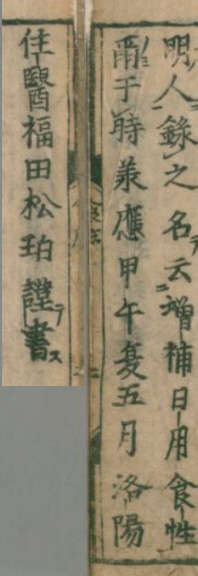 明人錄之名云増補日用食性
爾于時羕應甲午夏五月洛陽
住醫福田松珀謹書